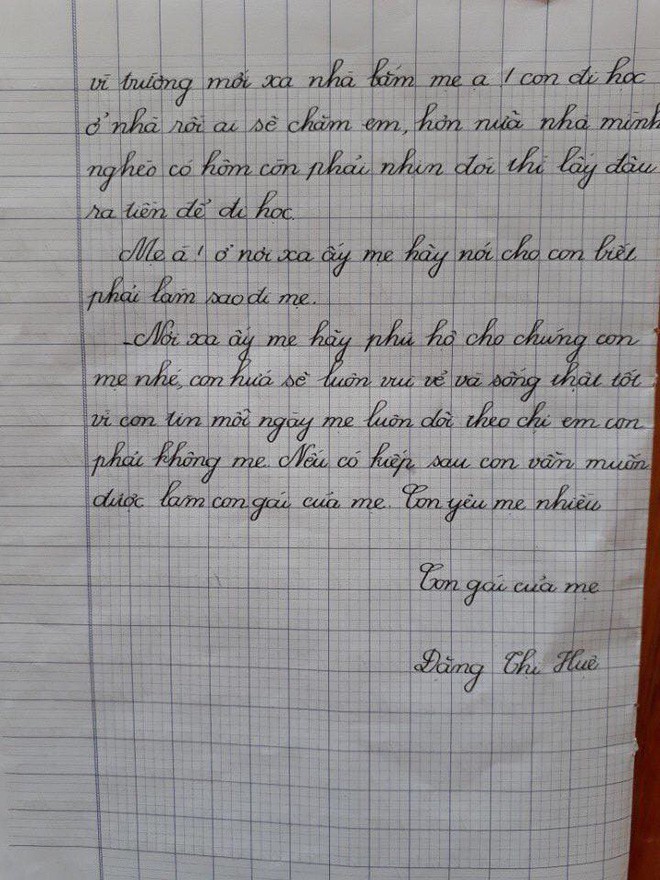 vì trường mới xa nhà lắm mẹ ạ! con đi học
ở nhà rồi ai sẽ chăm em, hơn nữa nhà mình
nghèo có hôm còn phải nhịn đói thì lấy đâu
ra tiền để đi học.
Mẹ à! ở nơi xa ấy mẹ hãy nói cho con biết
phải làm sao đi mẹ.
Nơi xa ấy mẹ hãy phù hộ cho chúng con
mẹ nhé, con hứa sẽ luôn vui vẻ và sống thật tốt
vì con tin mỗi ngày mẹ luôn dõi theo chị em con
phải không mẹ. Nếu có kiếp sau con vẫn muốn
được làm con gái của mẹ. Con yêu mẹ nhiều
Con gái của mẹ
Đặng Thị Huê